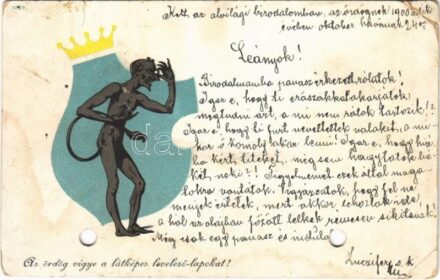 Kelt, az alvilági birodalomban, az ördögnek 1900-adik
évében október havának 24én
Leányok!
Birodalmamba panasz érkezett rólatok!
Igaz e, hogy ti erőszakkal akarjátok
megtudni azt, a mi nem rátok tartozik!?
Igaz e, hogy ti furt nevettek valakit, a mi-
kor ő komoly akar lenni? Igaz e, hogy
ha kért titeket, mégsem hagytatok
két, neki?! Figyelmezet
lokra vontátok. Vigyázzatok, hogy fel ne
menjek értetek, mert akkor lehozlak
a hol az olajban főzött lelkek keservesen sikítanak!
Még csak egy panasz és indulok!
Luczifer s. k.
Az ördög vigye a látképes levelező-lapokat!